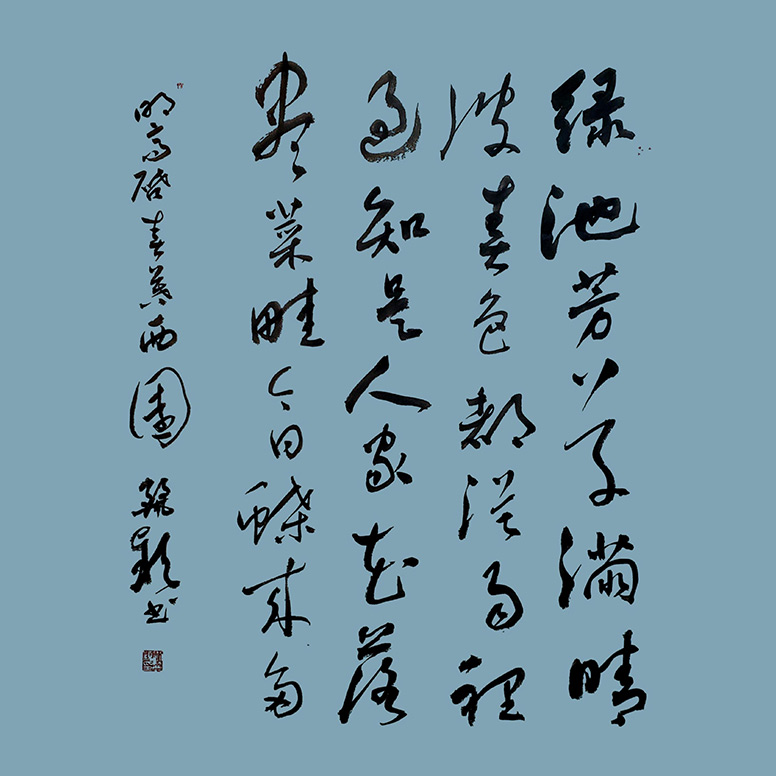 绿池芳草满晴
波春色都從雨裡
過知是人家花落
尽菜畦今日蝶来多
明高启春暮西園 书